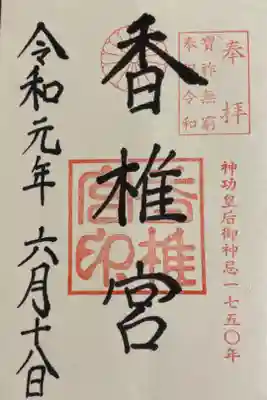 奉拝
寳祚無窮
奉祝令和
神功皇后御神忌一七五〇年
香椎宮
香椎宮印
令和元年六月十八日